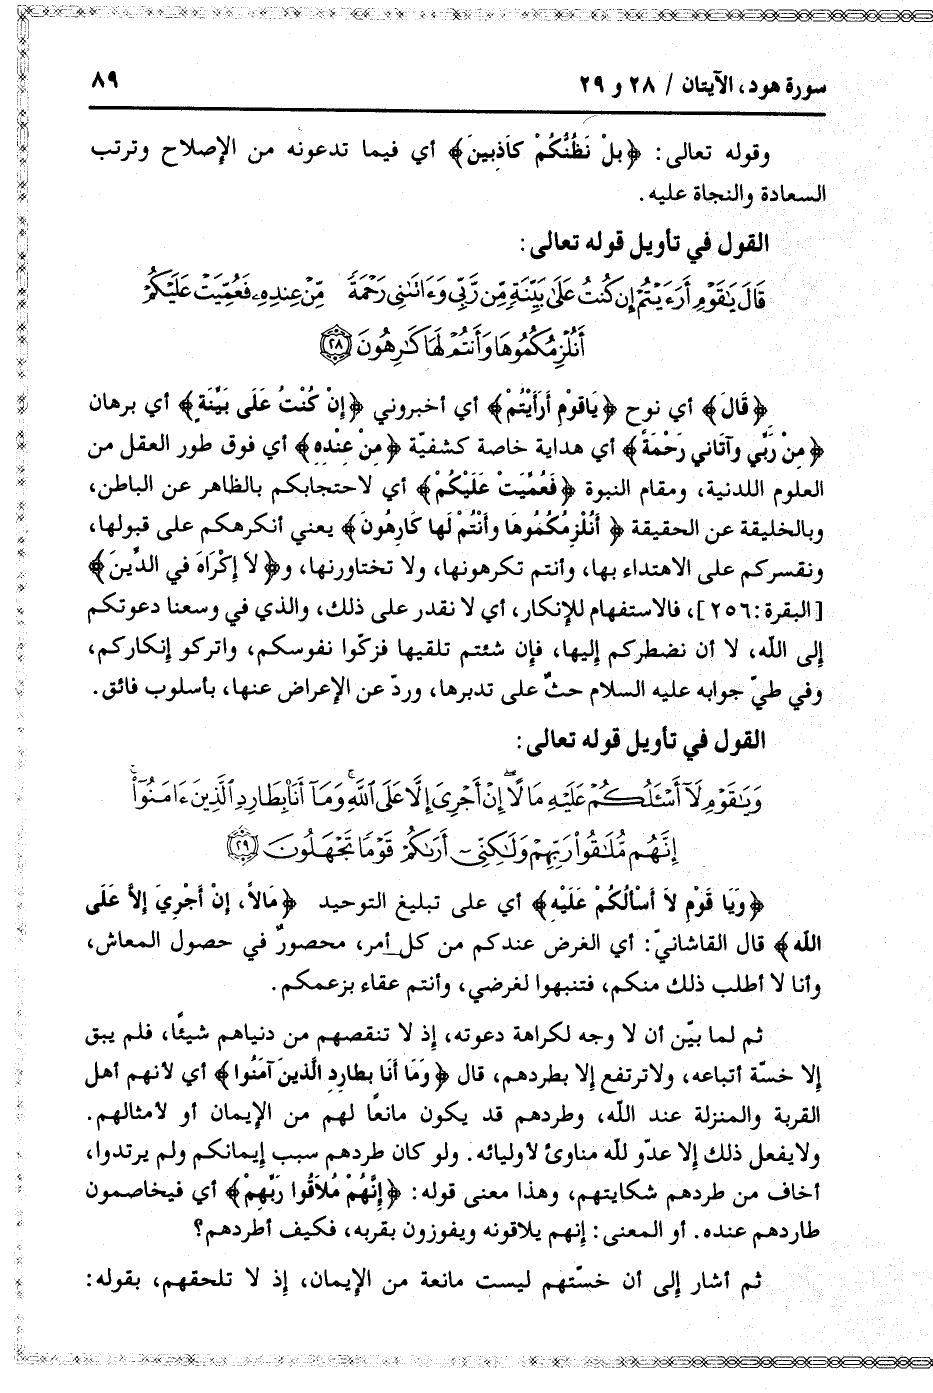 سورة هود، الآيتان / ٢٨ و ٢٩
٨٩
وقوله تعالى: ﴿بلْ نَظُنُّكُمْ كَاذبينَ﴾ أي فيما تدعونه من الإصلاح وترتب
السعادة والنجاة عليه.
القول في تأويل قوله تعالى:
قَالَ يَٰقَوْمِ أَرَءَيْتُمْ إِن كُنتُ عَلَىٰ بَيِّنَةٍ مِّن رَّبِّى وَءَاتَىٰنِى رَحْمَةً مِّنْ عِندِهِۦ فَعُمِّيَتْ عَلَيْكُمْ
أَنُلْزِمُكُمُوهَا وَأَنتُمْ لَهَا كَٰرِهُونَ ٢٨
﴿قَالَ﴾ أي نوح ﴿يَاقوْمِ أَرَأَيْتُمْ﴾ أي أخبروني ﴿إِنْ كُنْتُ عَلَى بَيِّنَةٍ﴾ أي برهان
﴿مِنْ رَبِّي وآتَاني رَحْمَةً﴾ أي هداية خاصة كشفيّة ﴿مِنْ عِنْدِه﴾ أي فوق طور العقل من
العلوم اللدنية، ومقام النبوة ﴿فَعُمِّيَتْ عَلَيْكُمْ﴾ أي لاحتجابكم بالظاهر عن الباطن،
وبالخليقة عن الحقيقة ﴿أَنُلْزِمُكُمُوهَا وأَنْتُمْ لَها كَارِهُونَ﴾ يعني أنكرهكم على قبولها،
ونقسركم على الاهتداء بها، وأنتم تكرهونها، ولا تختاورنها، و﴿لاَ إِكْرَاهَ في الدِّينَ﴾
[البقرة:٢٥٦]، فالاستفهام للإنكار، أي لا نقدر على ذلك، والذي في وسعنا دعوتكم
إلى اللّه، لا أن نضطركم إليها، فإن شئتم تلقيها فزكّوا نفوسكم، واتركو إنكاركم،
وفي طيّ جوابه عليه السلام حثٌ على تدبرها، وردّ عن الإعراض عنها، بأسلوب فائق.
القول في تأويل قوله تعالى:
وَيَٰقَوْمِ لَآ أَسْـَٔلُكُمْ عَلَيْهِ مَالًا ۖ إِنْ أَجْرِىَ إِلَّا عَلَى ٱللَّهِ ۚ وَمَآ أَنَا۠ بِطَارِدِ ٱلَّذِينَ ءَامَنُوٓا۟ ۚ
إِنَّهُم مُّلَٰقُوا۟ رَبِّهِمْ وَلَٰكِنِّىٓ أَرَىٰكُمْ قَوْمًا تَجْهَلُونَ ٢٩
﴿وَيَا قَوْمِ لاَ أَسْأَلُكُمْ عَلَيْهِ﴾ أي على تبليغ التوحيد ﴿مَالاً، إِنْ أَجْرِيَ إِلاَّ عَلَى
اللّه﴾ قال القاشانيّ: أي الغرض عندكم من كل أمر، محصورٌ في حصول المعاش،
وأنا لا أطلب ذلك منكم، فتنبهوا لغرضي، وأنتم عقاء بزعمكم.
ثم لما بيّن أن لا وجه لكراهة دعوته، إذ لا تنقصهم من دنياهم شيئًا، فلم يبق
إلا خسّة أتباعه، ولاترتفع إلا بطردهم، قال ﴿وَمَا أَنَا بطَارِد الَّذينَ آمَنُوا﴾ أي لأنهم أهل
القربة والمنزلة عند اللّه، وطردهم قد يكون مانعًا لهم من الإيمان أو لأمثالهم.
ولايفعل ذلك إلا عدّو للّه مناوئ لأوليائه. ولو كان طردهم سبب إيمانكم ولم يرتدوا،
أخاف من طردهم شكايتهم، وهذا معنى قوله: ﴿إِنَّهُمْ مُلاَقُوا رَبِّهِمْ﴾ أي فيخاصمون
طاردهم عنده. أو المعنى: إنهم يلاقونه ويفوزون بقربه، فكيف أطردهم؟
ثم أشار إلى أن خسّتهم ليست مانعة من الإيمان، إذ لا تلحقهم، بقوله: